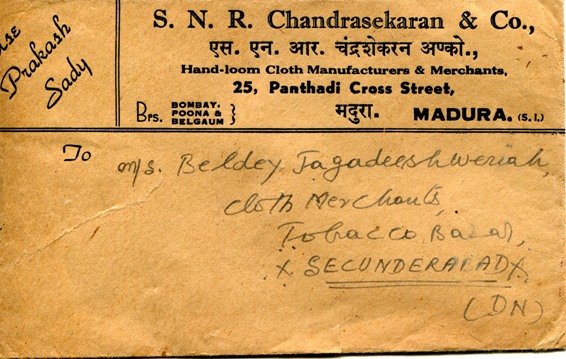 S. N. R. Chandrasekaran & Co.,
एस. एन. आर. चंद्रशेकरन अण्को.,
Hand-loom Cloth Manufacturers & Merchants,
25, Panthadi Cross Street,
Brs. BOMBAY, POONA & BELGAUM } मदुरा. MADURA. (S. I.)
Prakash
Sady
To
M/s. Beldey Jagadeeshweriah,
Cloth Merchants,
Tobacco Bazar,
X SECUNDERABAD X
(DN)